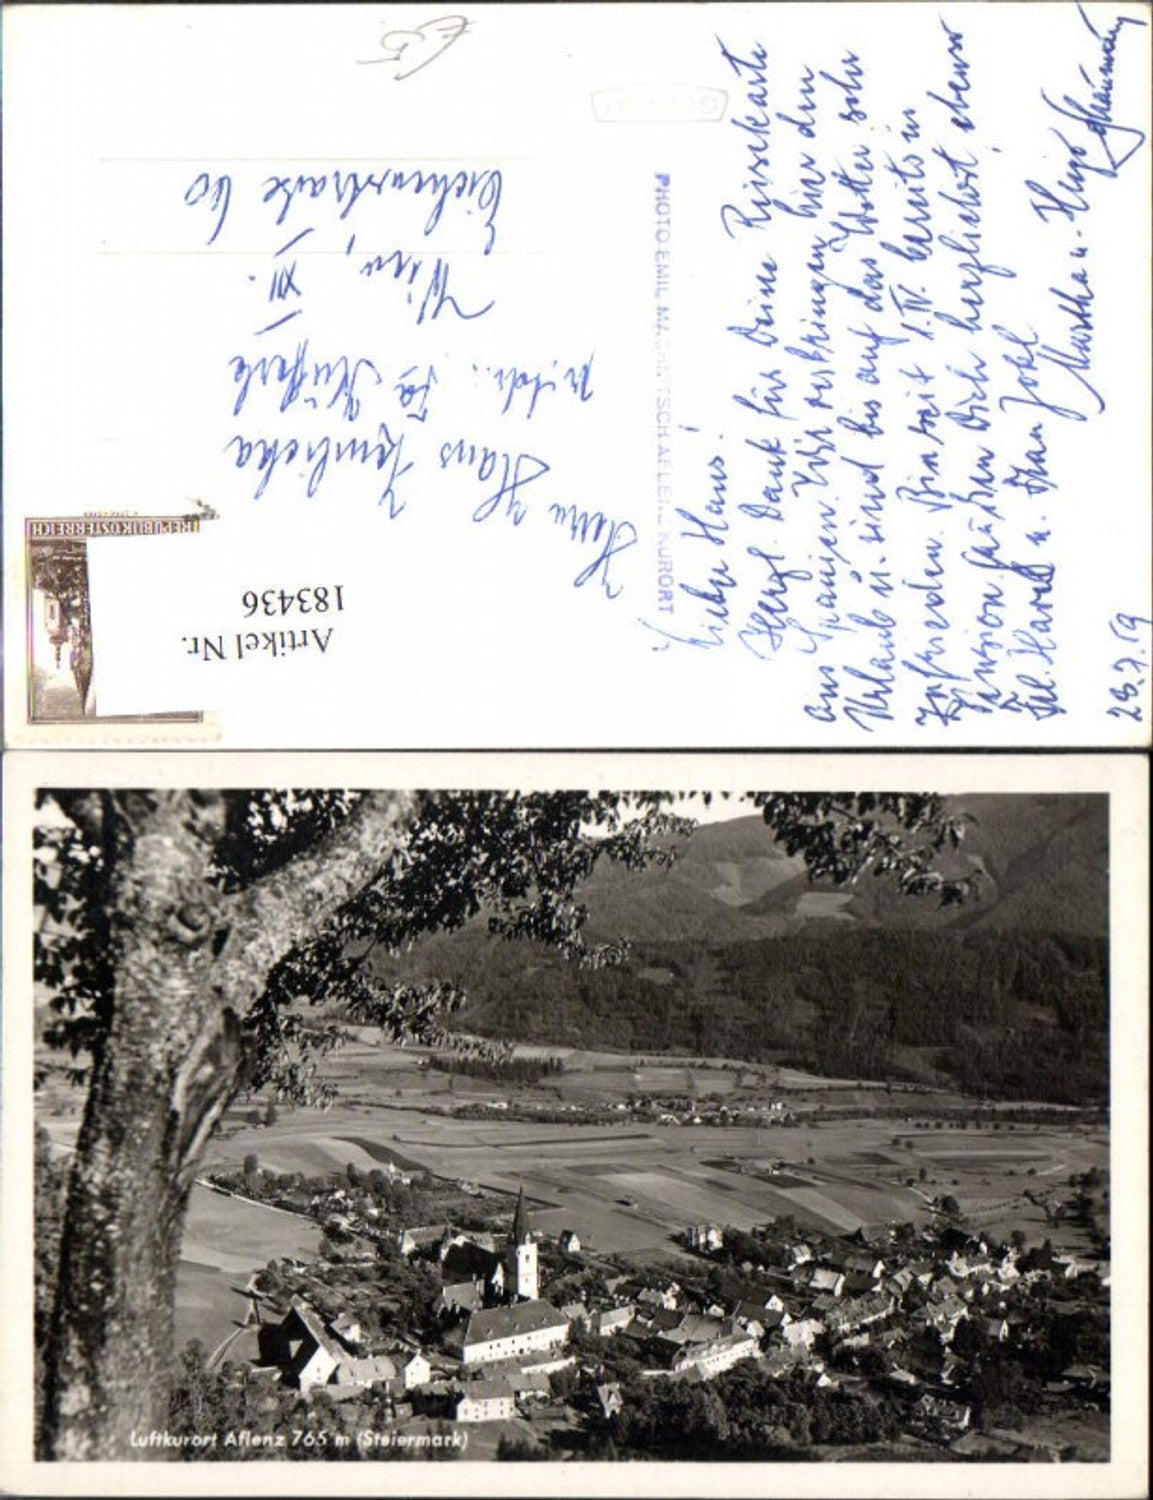 Lieber Hans!
Herzl. Dank für Deine Reisekarte
aus Spanien. Wir verbringen hier den
Urlaub u. sind bis auf das Wetter sehr
zufrieden. Bin seit 1. IV. bereits in
Pension. Grüßen Dich herzlichst, ebenso
Frl. Harell u. Frau Johl
Martha u. Hugo
28.7.59
PHOTO EMIL AFLENZ KURORT
Herrn
Hans
Fa
Wien, XII.
Eichenstraße 60
REPUBLIK ÖSTERREICH
Artikel Nr.
183436
Luftkurort Aflenz 765 m (Steiermark)